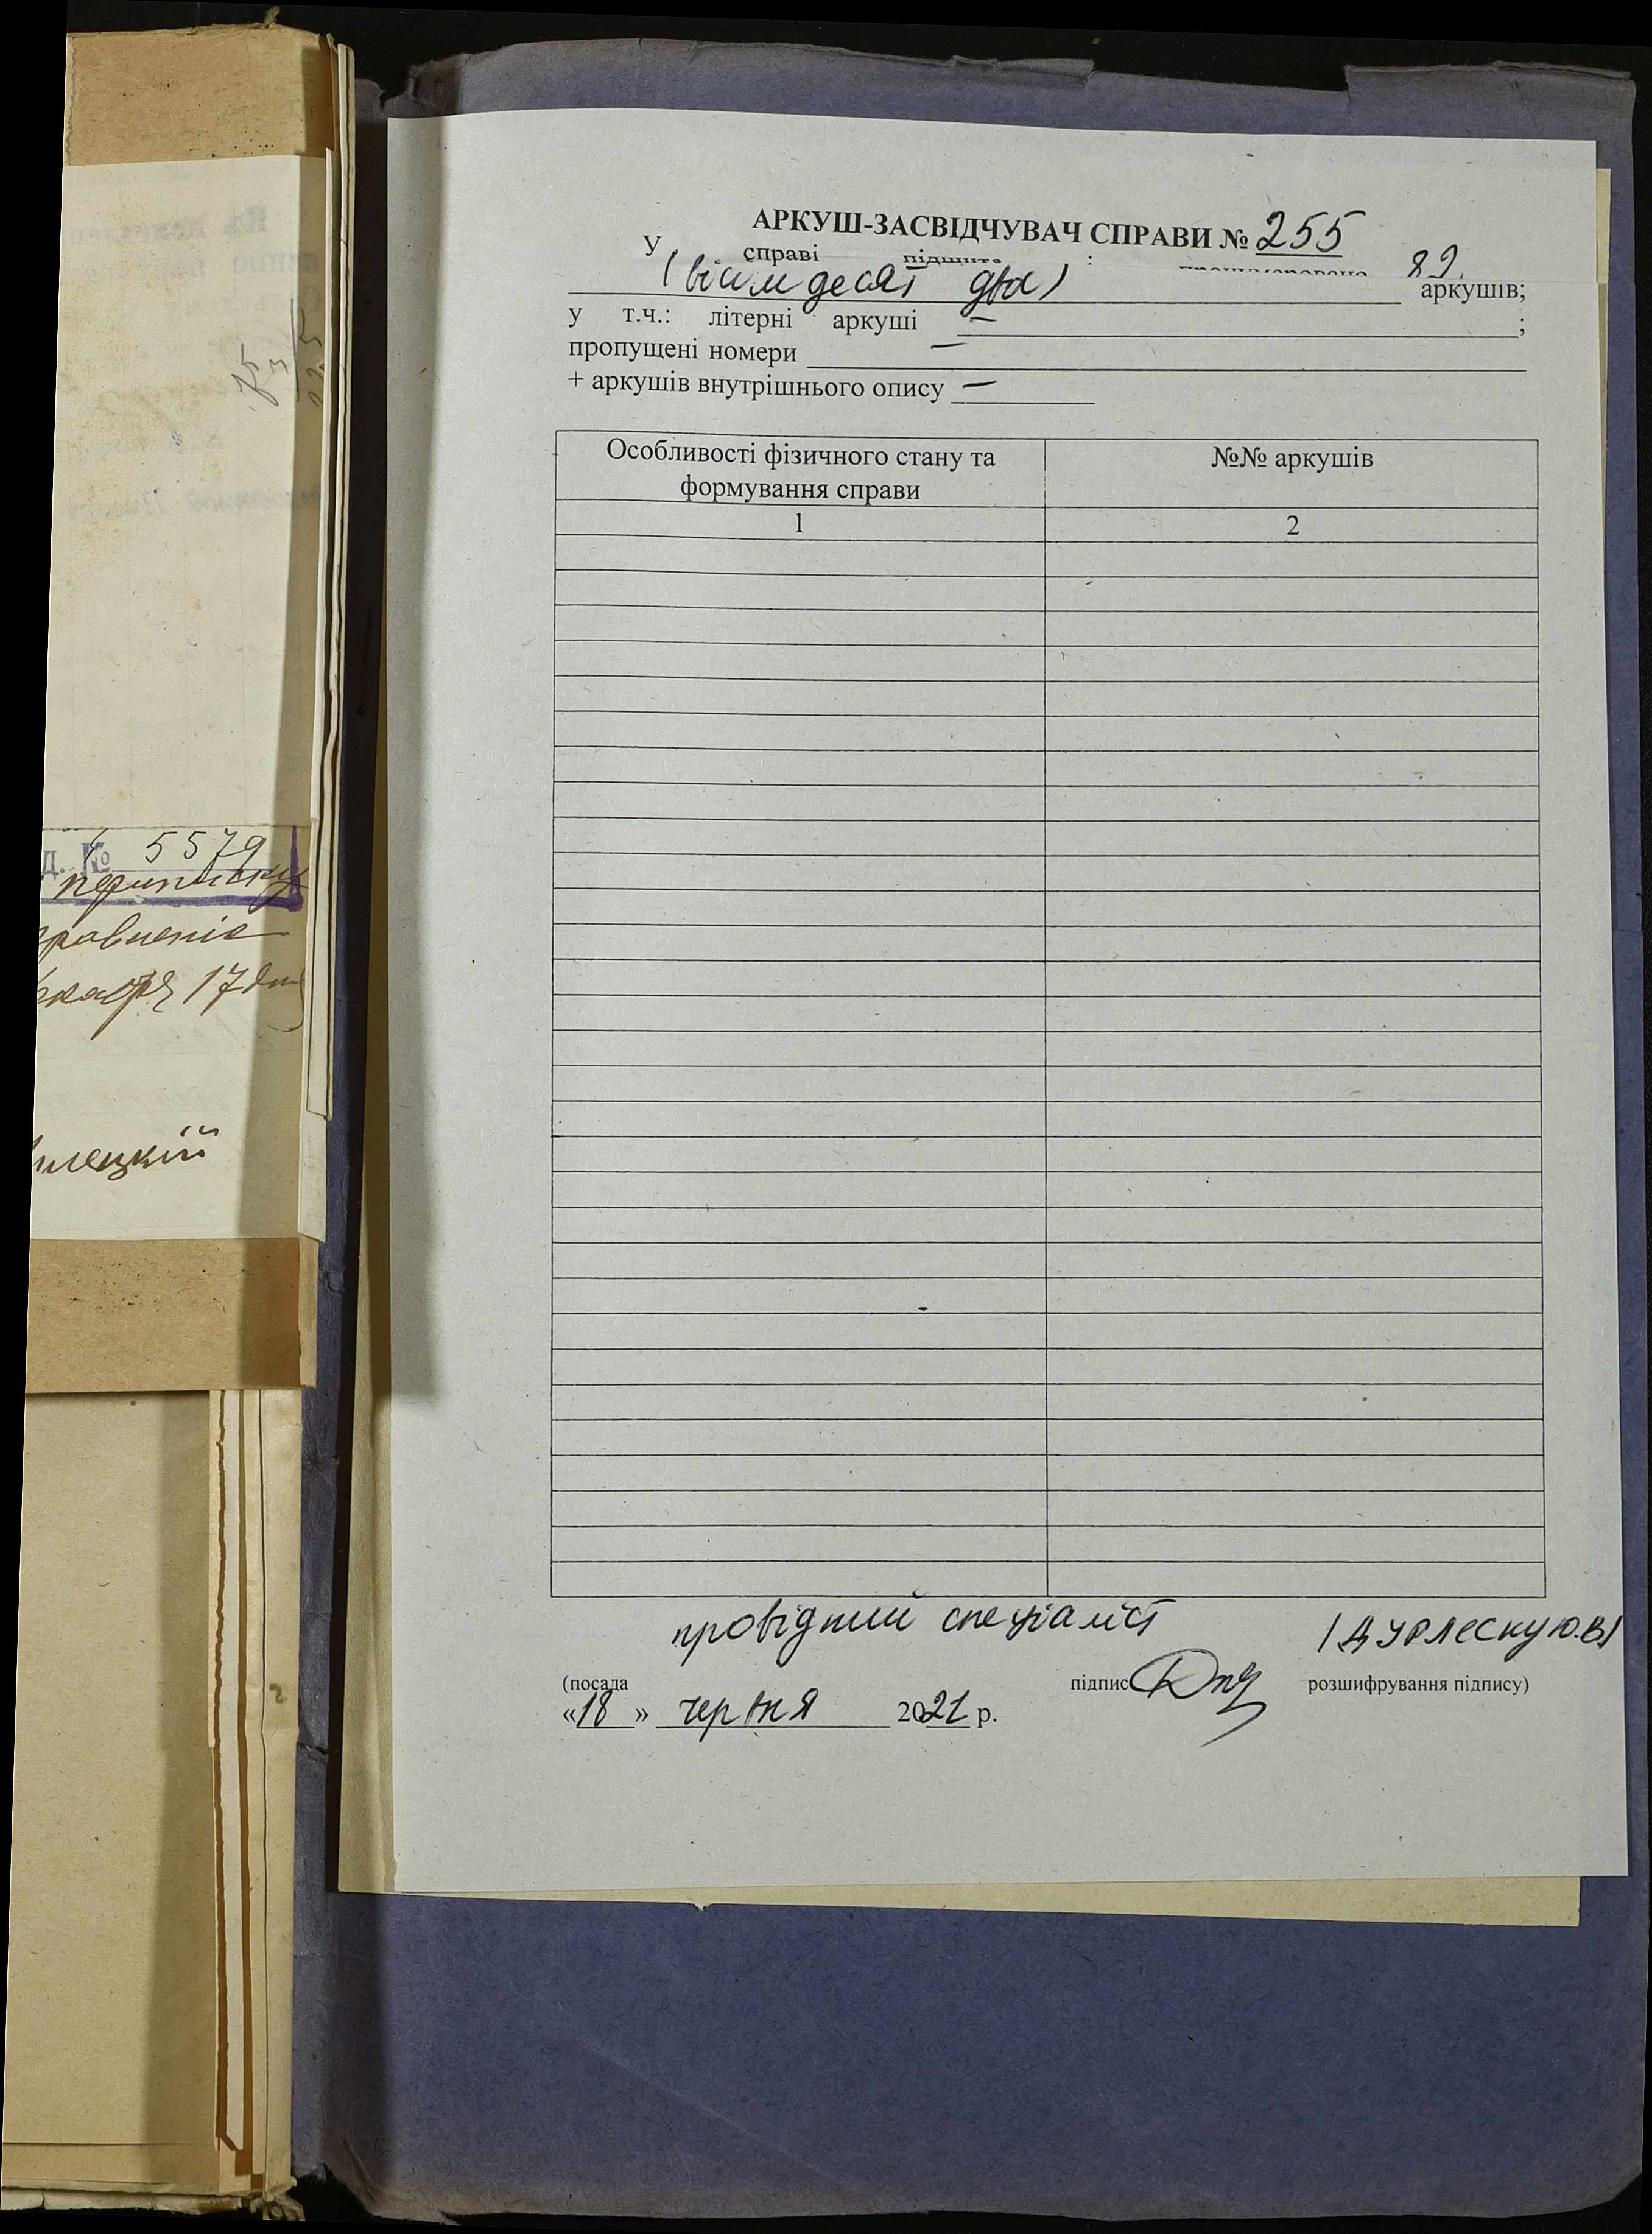 д. № 5579
переписку
Декабря 17 дня
АРКУШ-ЗАСВІДЧУВАЧ СПРАВИ № 255
У справі підшито і пронумеровано 82
(вісімдесят два) аркушів;
у т.ч.: літерні аркуші — ;
пропущені номери —
+ аркушів внутрішнього опису —
Особливості фізичного стану та №№ аркушів
формування справи
1 2
провідний спеціаліст /ДУРЛЕСКУ Ю.В/
(посада підпис розшифрування підпису)
«18» червня 2021 р.